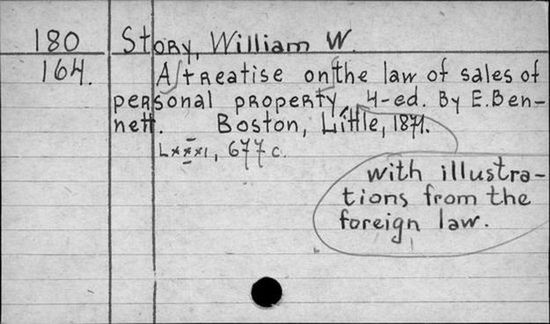 180 Story, William W.
164. A treatise on the law of sales of
personal property, 4-ed. By E. Ben-
nett. Boston, Little, 1871.
Lxxxi, 677 c.
with illustra-
tions from the
foreign law.